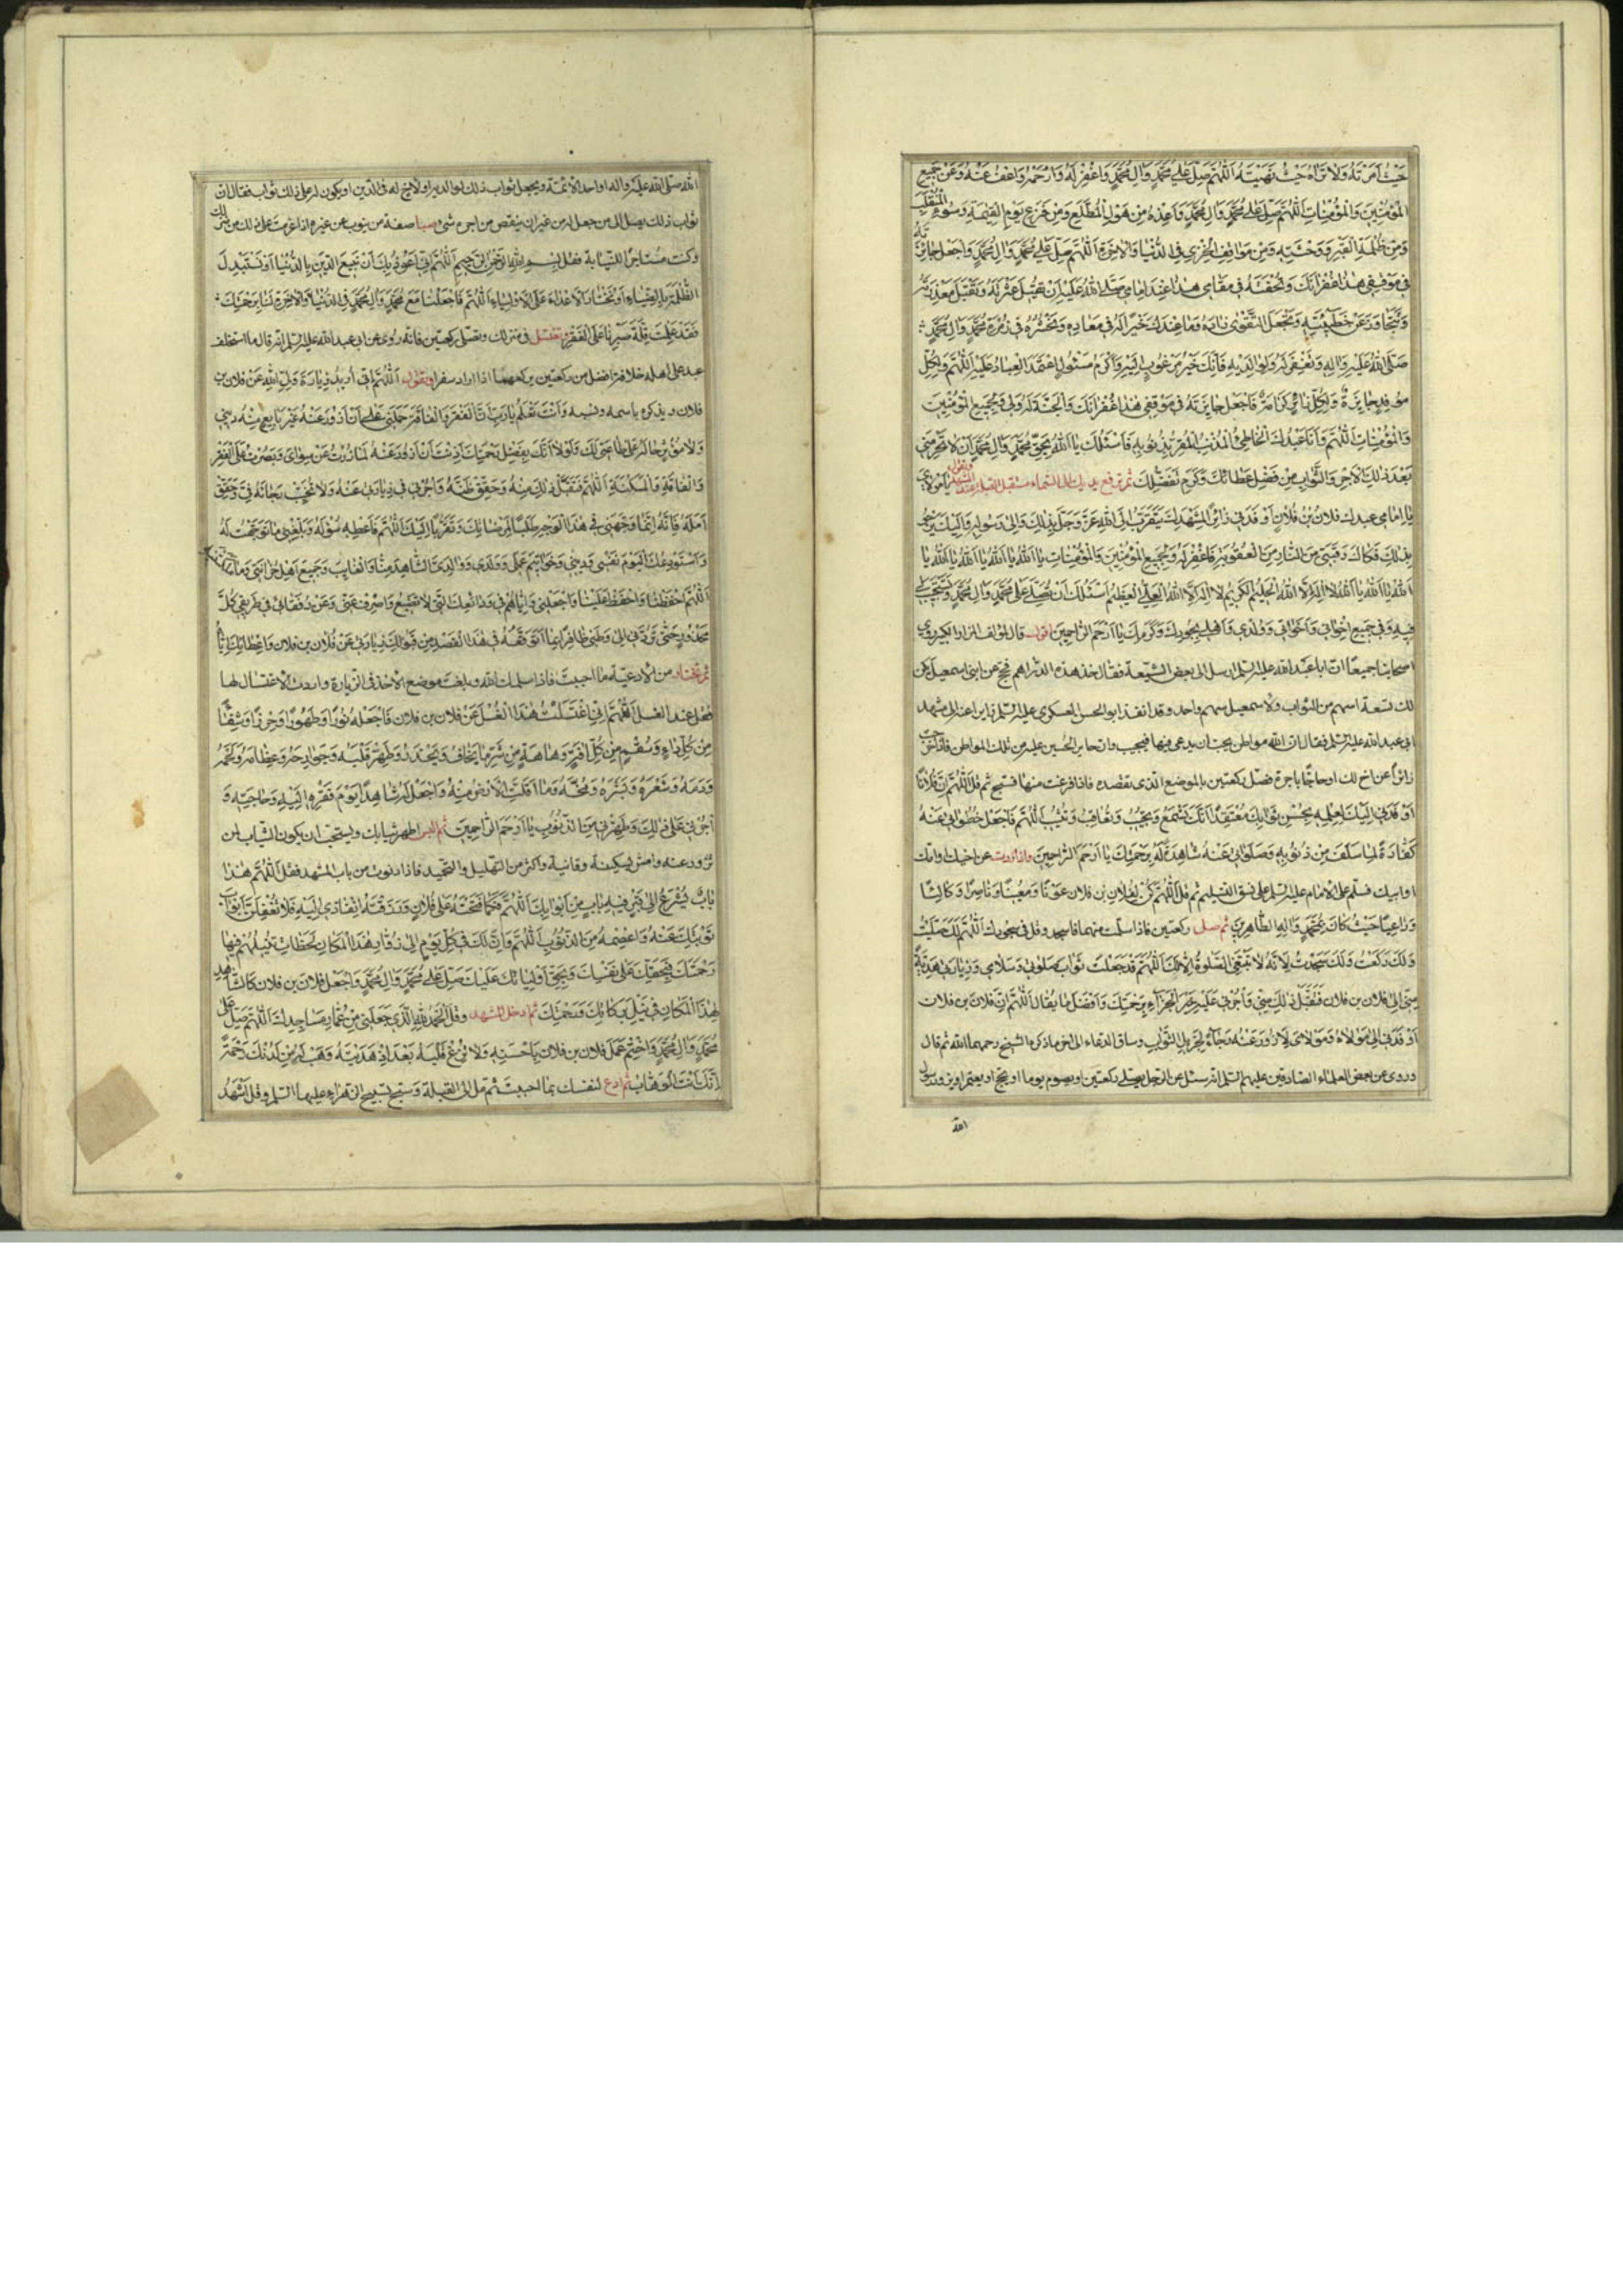 حَيْثُ اَمَرْتَهُ وَلَا تَرَاهُ حَيْثُ نَهَيْتَهُ اَللّٰهُمَّ صَلِّ عَلٰى مُحَمَّدٍ وَاٰلِ مُحَمَّدٍ وَاغْفِرْ لَهُ وَارْحَمْهُ وَاعْفُ عَنْهُ وَعَنْ جَمِيعِ
الْمُؤْمِنِينَ وَالْمُؤْمِنَاتِ اَللّٰهُمَّ صَلِّ عَلٰى مُحَمَّدٍ وَاٰلِ مُحَمَّدٍ وَاَعِذْهُ مِنْ هَوْلِ الْمُطَّلَعِ وَمِنْ فَزَعِ يَوْمِ الْقِيٰمَةِ وَسُوءِ الْمُنْقَلَبِ
وَمِنْ ظُلْمَةِ الْقَبْرِ وَوَحْشَتِهِ وَمِنْ مَوَاقِفِ الْخِزْيِ فِي الدُّنْيَا وَالْاٰخِرَةِ اَللّٰهُمَّ صَلِّ عَلٰى مُحَمَّدٍ وَاٰلِ مُحَمَّدٍ وَاجْعَلْ جَائِزَتَهُ
فِي مَوْقِفِي هٰذَا غُفْرَانَكَ وَتُحْفَتَهُ فِي مَقَامِي هٰذَا عِنْدَ اِمَامِي صَلَّى اللّٰهُ عَلَيْهِ اَنْ تَقْبَلَ عَثْرَتَهُ وَتَقْبَلَ مَعْذِرَتَهُ
وَتَتَجَاوَزَ عَنْ خَطِيئَتِهِ وَتَجْعَلَ التَّقْوٰى زَادَهُ وَمَا عِنْدَكَ خَيْرًا لَهُ فِي مَعَادِهِ وَتَحْشُرَهُ فِي زُمْرَةِ مُحَمَّدٍ وَاٰلِ مُحَمَّدٍ
صَلَّى اللّٰهُ عَلَيْهِ وَاٰلِهِ وَتَغْفِرَ لَهُ وَلِوَالِدَيْهِ فَاِنَّكَ خَيْرُ مَرْغُوبٍ اِلَيْهِ وَاَكْرَمُ مَسْئُولٍ اعْتَمَدَ الْعِبَادُ عَلَيْهِ اَللّٰهُمَّ وَلِكُلِّ
مُوفِدٍ جَائِزَةٌ وَلِكُلِّ زَائِرٍ كَرَامَةٌ فَاجْعَلْ جَائِزَتَهُ فِي مَوْقِفِي هٰذَا غُفْرَانَكَ وَالْجَنَّةَ لَهُ وَلِي وَلِجَمِيعِ الْمُؤْمِنِينَ
وَالْمُؤْمِنَاتِ اَللّٰهُمَّ وَاَنَا عَبْدُكَ الْخَاطِئُ الْمُذْنِبُ الْمُقِرُّ بِذُنُوبِهِ فَاَسْئَلُكَ يَا اَللّٰهُ بِحَقِّ مُحَمَّدٍ وَاٰلِ مُحَمَّدٍ اَنْ لَا تَحْرِمَنِي
بَعْدَ ذٰلِكَ الْاَجْرَ وَالثَّوَابَ مِنْ فَضْلِ عَطَائِكَ وَكَرَمِ تَفَضُّلِكَ ثم ترفع يديك الى السماء مستقبل القبلة عند المشهد وتقول يَا مَوْلَايَ
يَا اِمَامِي عبدك فلان بْنُ فُلَانٍ اَوْفَدَنِي زَائِرًا لِمَشْهَدِكَ يَتَقَرَّبُ اِلَى اللّٰهِ عَزَّ وَجَلَّ بِذٰلِكَ وَاِلٰى رَسُولِهِ وَاِلَيْكَ يَرْجُو
بِذٰلِكَ فَكَاكَ رَقَبَتِهِ مِنَ النَّارِ مِنَ الْعُقُوبَةِ فَاغْفِرْ لَهُ وَلِجَمِيعِ الْمُؤْمِنِينَ وَالْمُؤْمِنَاتِ يَا اَللّٰهُ يَا اَللّٰهُ يَا اَللّٰهُ يَا اَللّٰهُ يَا
اَللّٰهُ يَا اَللّٰهُ يَا اَللّٰهُ لَا اِلٰهَ اِلَّا اللّٰهُ الْحَلِيمُ الْكَرِيمُ لَا اِلٰهَ اِلَّا اللّٰهُ الْعَلِيُّ الْعَظِيمُ اَسْئَلُكَ اَنْ تُصَلِّيَ عَلٰى مُحَمَّدٍ وَاٰلِ مُحَمَّدٍ وَتَسْتَجِيبَ لِي
فِيهِ وَفِي جَمِيعِ اِخْوَانِي وَاَخَوَاتِي وَوُلْدِي وَاَهْلِي بِجُودِكَ وَكَرَمِكَ يَا اَرْحَمَ الرَّاحِمِينَ اقول قال مؤلف المزار الكبير روى
اصحابنا جميعا ان ابا عبد الله عليه السلم ارسل الى بعض الشيعة فقال خذ هذه الدراهم فحج عن ابني اسمعيل يكن
لك تسعة اسهم من الثواب ولاسمعيل سهم واحد وقد انفذ ابو الحسن العسكري عليه السلم زايرا عنه الى مشهد
ابي عبد الله عليه السلم فقال ان لله مواطن يحب ان يدعى فيها فيجيب وان حاير الحسين عليه من تلك المواطن فاذا خرجت
زائرًا عن اخ لك او حاجًا باجرة فصل ركعتين بالموضع الذي تقصده فاذا فرغت منها فسبح ثم قل اَللّٰهُمَّ اِنَّ فُلَانًا
اَوْفَدَنِي اِلَيْكَ لِعِلْمِهِ بِحُسْنِ ثَوَابِكَ مُعْتَقِدًا اَنَّكَ تَسْمَعُ وَتُجِيبُ وَتُعَاقِبُ وَتُثِيبُ اَللّٰهُمَّ فَاجْعَلْ خُطُوَاتِي عَنْهُ
كَفَّارَةً لِمَا سَلَفَ مِنْ ذُنُوبِهِ وَصَلَوٰتِي عَنْهُ شَاهِدَةً لَهُ بِرَحْمَتِكَ يَا اَرْحَمَ الرَّاحِمِينَ واذا زرت عن اخيك وامك
او ابيك فسلم على الامام عليه السلم على نسق التسليم ثم قل اَللّٰهُمَّ كُنْ لِفُلَانِ بن فلان عَوْنًا وَمُعِينًا وَنَاصِرًا وَكَالِئًا
وَرَاعِيًا حَيْثُ كَانَ بِمُحَمَّدٍ وَاٰلِهِ الطَّاهِرِينَ ثم صل ركعتين فاذا سلمت منهما فاسجد وقل في سجودك اَللّٰهُمَّ لَكَ صَلَّيْتُ
وَلَكَ رَكَعْتُ وَلَكَ سَجَدْتُ لِاَنَّهُ لَا تَنْبَغِي الصَّلٰوةُ اِلَّا لَكَ اَللّٰهُمَّ قَدْ جَعَلْتُ ثَوَابَ صَلَوٰتِي وَسَلَامِي وَزِيَارَتِي هَدِيَّةً
مِنِّي اِلٰى فلان بن فلان فَتَقَبَّلْ ذٰلِكَ مِنِّي وَاْجُرْنِي عَلَيْهِ خَيْرَ الْجَزَاءِ بِرَحْمَتِكَ وَافضل ما يقال اَللّٰهُمَّ اِنَّ فلان بن فلان
اَوْفَدَنِي اِلٰى مَوْلَاهُ وَمَوْلَايَ لِاَزُورَ عَنْهُ رَجَاءً لِجَزِيلِ الثَّوَابِ وساق الدعاء الى اخر ما ذكره الشيخ رحمهما الله ثم قال
وروى عن بعض العلماء الصادقين عليهم السلم انه سئل عن الرجل يصلي ركعتين او يصوم يوما او يحج او يعتمر او يزور رسول
الله
الله صلى الله عليه واله او احد الائمة ويجعل ثواب ذلك لوالديه او لاخ له في الدين او يكون له على ذلك ثواب فقال ان
ثواب ذلك يصل الى من جعل له من غير ان ينقص من اجره شئ صفة من ينوب عن غيره اذا عزمت على ذلك
وكنت مستاجرا للنيابة فقل بِسْمِ اللّٰهِ الرَّحْمٰنِ الرَّحِيمِ اَللّٰهُمَّ اِنِّي اَعُوذُ بِكَ اَنْ نَبِيعَ الدِّينَ بِالدُّنْيَا اَوْ نَسْتَبْدِلَ
الظُّلْمَةَ بِالضِّيَاءِ اَوْ نَخْتَارَ الْاَعْدَاءَ عَلَى الْاَوْلِيَاءِ اَللّٰهُمَّ فَاجْعَلْنَا مَعَ مُحَمَّدٍ وَاٰلِ مُحَمَّدٍ فِي الدُّنْيَا وَالْاٰخِرَةِ بِرَحْمَتِكَ
فَقَدْ عَلِمْتَ قِلَّةَ صَبْرِنَا عَلَى الْفَقْرِ وتغتسل في منزلك وتصلي ركعتين فانه روى عن ابي عبد الله عليه السلم انه قال ما استخلف
عبد على اهله خلافة افضل من ركعتين يركعهما اذا اراد سفرا وتقول اَللّٰهُمَّ اِنِّي اُرِيدُ زِيَارَةَ وَلِيِّ اللّٰهِ عَنْ فلان بن
فلان ويذكره باسمه ونسبه وَاَنْتَ تَعْلَمُ يَا رَبِّ اَنَّ الْفَقْرَ وَالْفَاقَةَ حَمَلَنِي عَلٰى اَنْ اَزُورَ عَنْهُ غَيْرَ بَايِعٍ مِنْهُ دِينِي
وَلَا مُؤْثِرٍ حَالَهُ عَلٰى طَاعَتِي لَكَ وَلَوْلَا اَنَّكَ بِفَضْلِ رَحْمَتِكَ اَذِنْتَ اَنْ اَزُورَ عَنْهُ لَمَا زُرْتُ عَنْ سِوَايَ وَلَصَبَرْتُ عَلَى الْفَقْرِ
وَالْفَاقَةِ وَالْمَسْكَنَةِ اَللّٰهُمَّ فَتَقَبَّلْ ذٰلِكَ مِنْهُ وَحَقِّقْ ظَنَّهُ وَاْجُرْنِي فِي زِيَارَتِي عَنْهُ وَلَا تُخَيِّبْ رَجَائَهُ فِيَّ وَحَقِّقْ
اَمَلَهُ فَاِنَّهُ اِنَّمَا وَجَّهَنِي فِي هٰذَا الْوَجْهِ طَلَبًا لِمَرْضَاتِكَ وَتَقَرُّبًا اِلَيْكَ اَللّٰهُمَّ فَاَعْطِهِ سُؤْلَهُ وَبَلِّغْنِي مَا تَوَجَّهْتُ لَهُ
وَاَسْتَوْدِعُكَ الْيَوْمَ نَفْسِي وَدِينِي وَخَوَاتِيمَ عَمَلِي وَوُلْدِي وَوَالِدَيَّ الشَّاهِدَ مِنَّا وَالْغَايِبَ وَجَمِيعَ اَهْلِ حُزَانَتِي وَمَا
اَللّٰهُمَّ احْفَظْنَا وَاحْفَظْ عَلَيْنَا وَاجْعَلْنِي وَاِيَّاهُمْ فِي وَدَائِعِكَ الَّتِي لَا تَضِيعُ وَاصْرِفْ عَنِّي وَعَنْ رُفَقَائِي فِي طَرِيقِي كُلَّ
مَحْذُورٍ حَتّٰى تَرُدَّنِي اِلٰى وَطَنِي ظَافِرًا بِمَا اَتَوَقَّعُهُ فِي هٰذَا الْقَصْدِ مِنْ قَبُولِكَ زِيَارَتِي عَنْ فُلَانِ بن فلان وَاِعْطَائِكَ اِيَّاهُ
ثم تختار من الادعية ما احببت فاذا سلمك الله وبلغت موضع الاخذ في الزيارة واردت الاغتسال لها
فقل عند الغسل اَللّٰهُمَّ اِنِّي اغْتَسَلْتُ هٰذَا الْغُسْلَ عَنْ فلان بن فلان فَاجْعَلْهُ نُورًا وَطَهُورًا وَحِرْزًا وَشِفَاءً
مِنْ كُلِّ دَاءٍ وَسُقْمٍ مِنْ كُلِّ اٰفَةٍ وَعَاهَةٍ مِنْ شَرِّ مَا يَخَافُ وَيَحْذَرُ وَطَهِّرْ قَلْبَهُ وَجَوَارِحَهُ وَعِظَامَهُ وَلَحْمَهُ
وَدَمَهُ وَشَعْرَهُ وَبَشَرَهُ وَمُخَّهُ وَمَا اَقَلَّتِ الْاَرْضُ مِنْهُ وَاجْعَلْ لَهُ شَاهِدًا يَوْمَ فَقْرِهِ اِلَيْهِ وَحَاجَتِهِ وَ
اْجُرْنِي عَلٰى ذٰلِكَ وَطَهِّرْنِي مِنَ الذُّنُوبِ يَا اَرْحَمَ الرَّاحِمِينَ ثم البس اطهر ثيابك ويستحب ان يكون الثياب لمن
تزور عنه وامش بسكينة وتأنية واكثر من التهليل والتحميد فاذا دنوت من باب المشهد فقل اَللّٰهُمَّ هٰذَا
بَابٌ يُشْرَعُ اِلٰى قَبْرٍ فِيهِ بَابٌ مِنْ اَبْوَابِكَ اَللّٰهُمَّ فَكَمَا فَتَحْتَهُ عَلٰى فُلَانٍ وَرَزَقْتَهُ اِنْفَاذِي اِلَيْهِ فَلَا تُغْلِقَنَّ اَبْوَابَ
تَوْبَتِكَ عَنْهُ وَاعْصِمْهُ مِنَ الذُّنُوبِ اَللّٰهُمَّ وَاِنَّ لَكَ فِي كُلِّ يَوْمٍ اِلٰى زُوَّارِ هٰذَا الْمَكَانِ لَحَظَاتٍ تُنِيلُهُمْ فِيهَا
رَحْمَتَكَ فَبِحَقِّكَ عَلٰى نَفْسِكَ وَبِحَقِّ اَوْلِيَائِكَ عَلَيْكَ صَلِّ عَلٰى مُحَمَّدٍ وَاٰلِ مُحَمَّدٍ وَاجْعَلْ فلان بن فلان كَالشَّاهِدِ
لِهٰذَا الْمَكَانِ فِي نَيْلِ بَرَكَاتِكَ وَرَحْمَتِكَ ثم ادخل المشهد وقل اَلْحَمْدُ لِلّٰهِ الَّذِي جَعَلَنِي مِنْ عُمَّارِ مَسَاجِدِكَ اَللّٰهُمَّ صَلِّ عَلٰى
مُحَمَّدٍ وَاٰلِ مُحَمَّدٍ وَاخْتِمْ عَمَلَ فلان بن فلان بِاَحْسَنِهِ وَلَا تُزِغْ قَلْبَهُ بَعْدَ اِذْ هَدَيْتَهُ وَهَبْ لَهُ مِنْ لَدُنْكَ رَحْمَةً
اِنَّكَ اَنْتَ الْوَهَّابُ ثم ادع لنفسك بما احببت ثم مل الى القبلة وسبح تسبيح الزهراء عليها السلم وقل اَشْهَدُ